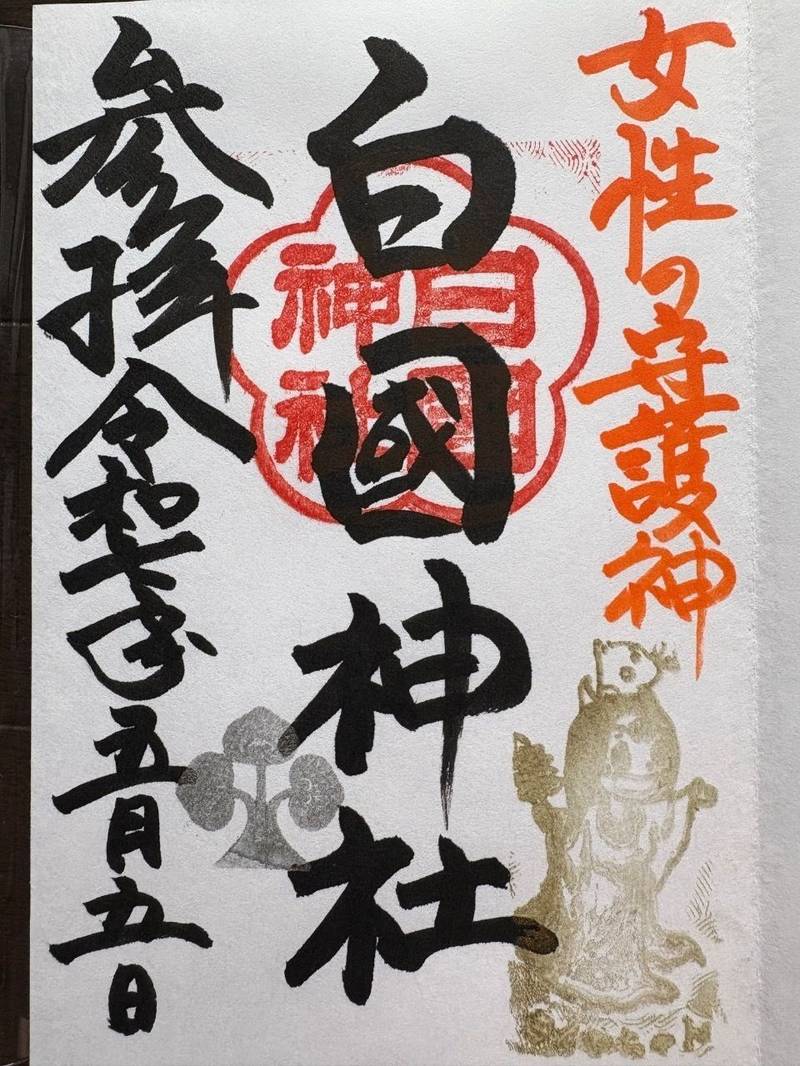 女性の守護神
白國神社
白國
神社
参拝 令和七年五月五日